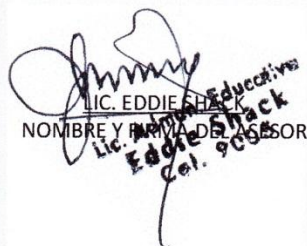 LIC. EDDIE SHACK
NOMBRE Y FIRMA DEL ASESOR
Lic. Admón. Educativa
Eddie Shack
Col.